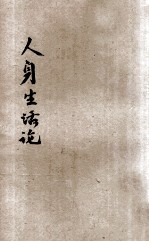 人身生活说